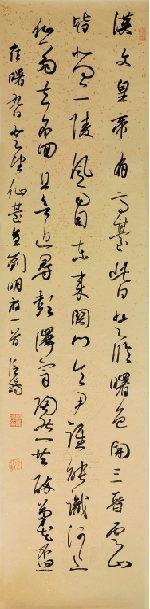 漢文皇帝有高臺此日登臨曙色開三晉雲山
皆北向二陵風雨自東來關門令尹誰能識河上
仙翁去不回且欲近尋彭澤宰陶然一共醉菊花盃
崔曙九日登望仙臺呈劉明府一首